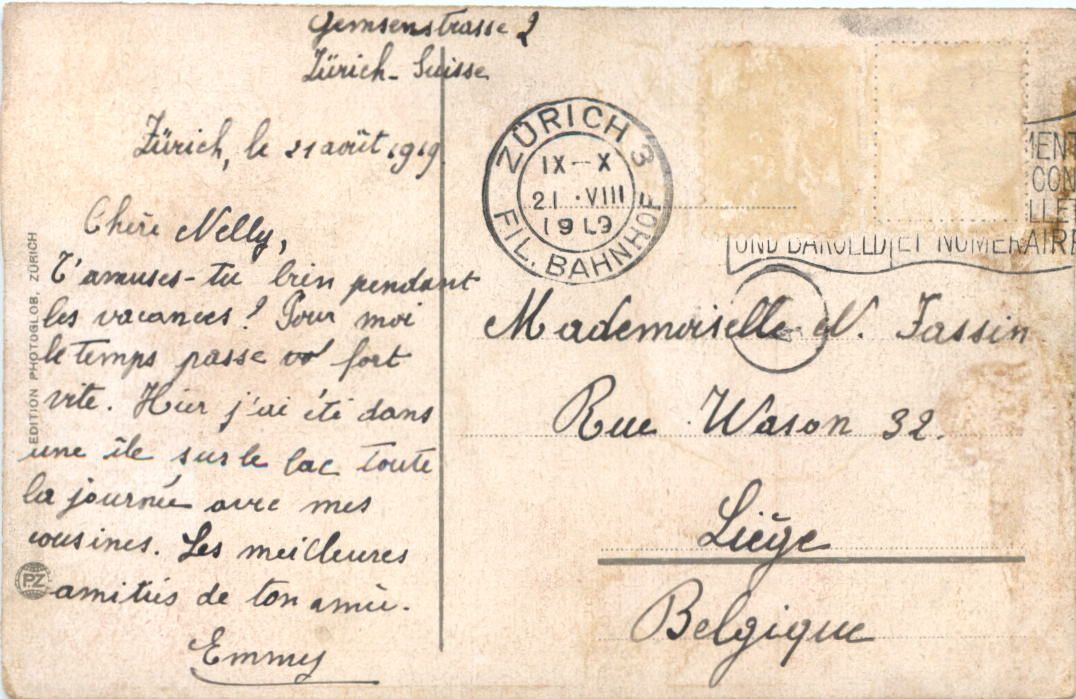 Gemsenstrasse 2
Zürich - Suisse
Zürich, le 21 août 1919
Chère Nelly,
T'amuses-tu bien pendant
les vacances? Pour moi
le temps passe fort
vite. Hier j'ai été dans
une île sur le lac toute
la journée avec mes
cousines. Les meilleures
amitiés de ton amie.
Emmy
EDITION PHOTOGLOB, ZÜRICH
PZ
ZÜRICH 3
IX-X
21.VIII
1919
FIL. BAHNHOF
UND BARGELD ET NUMERAIRE
Mademoiselle N. Fassin
Rue Wason 32.
Liège
Belgique